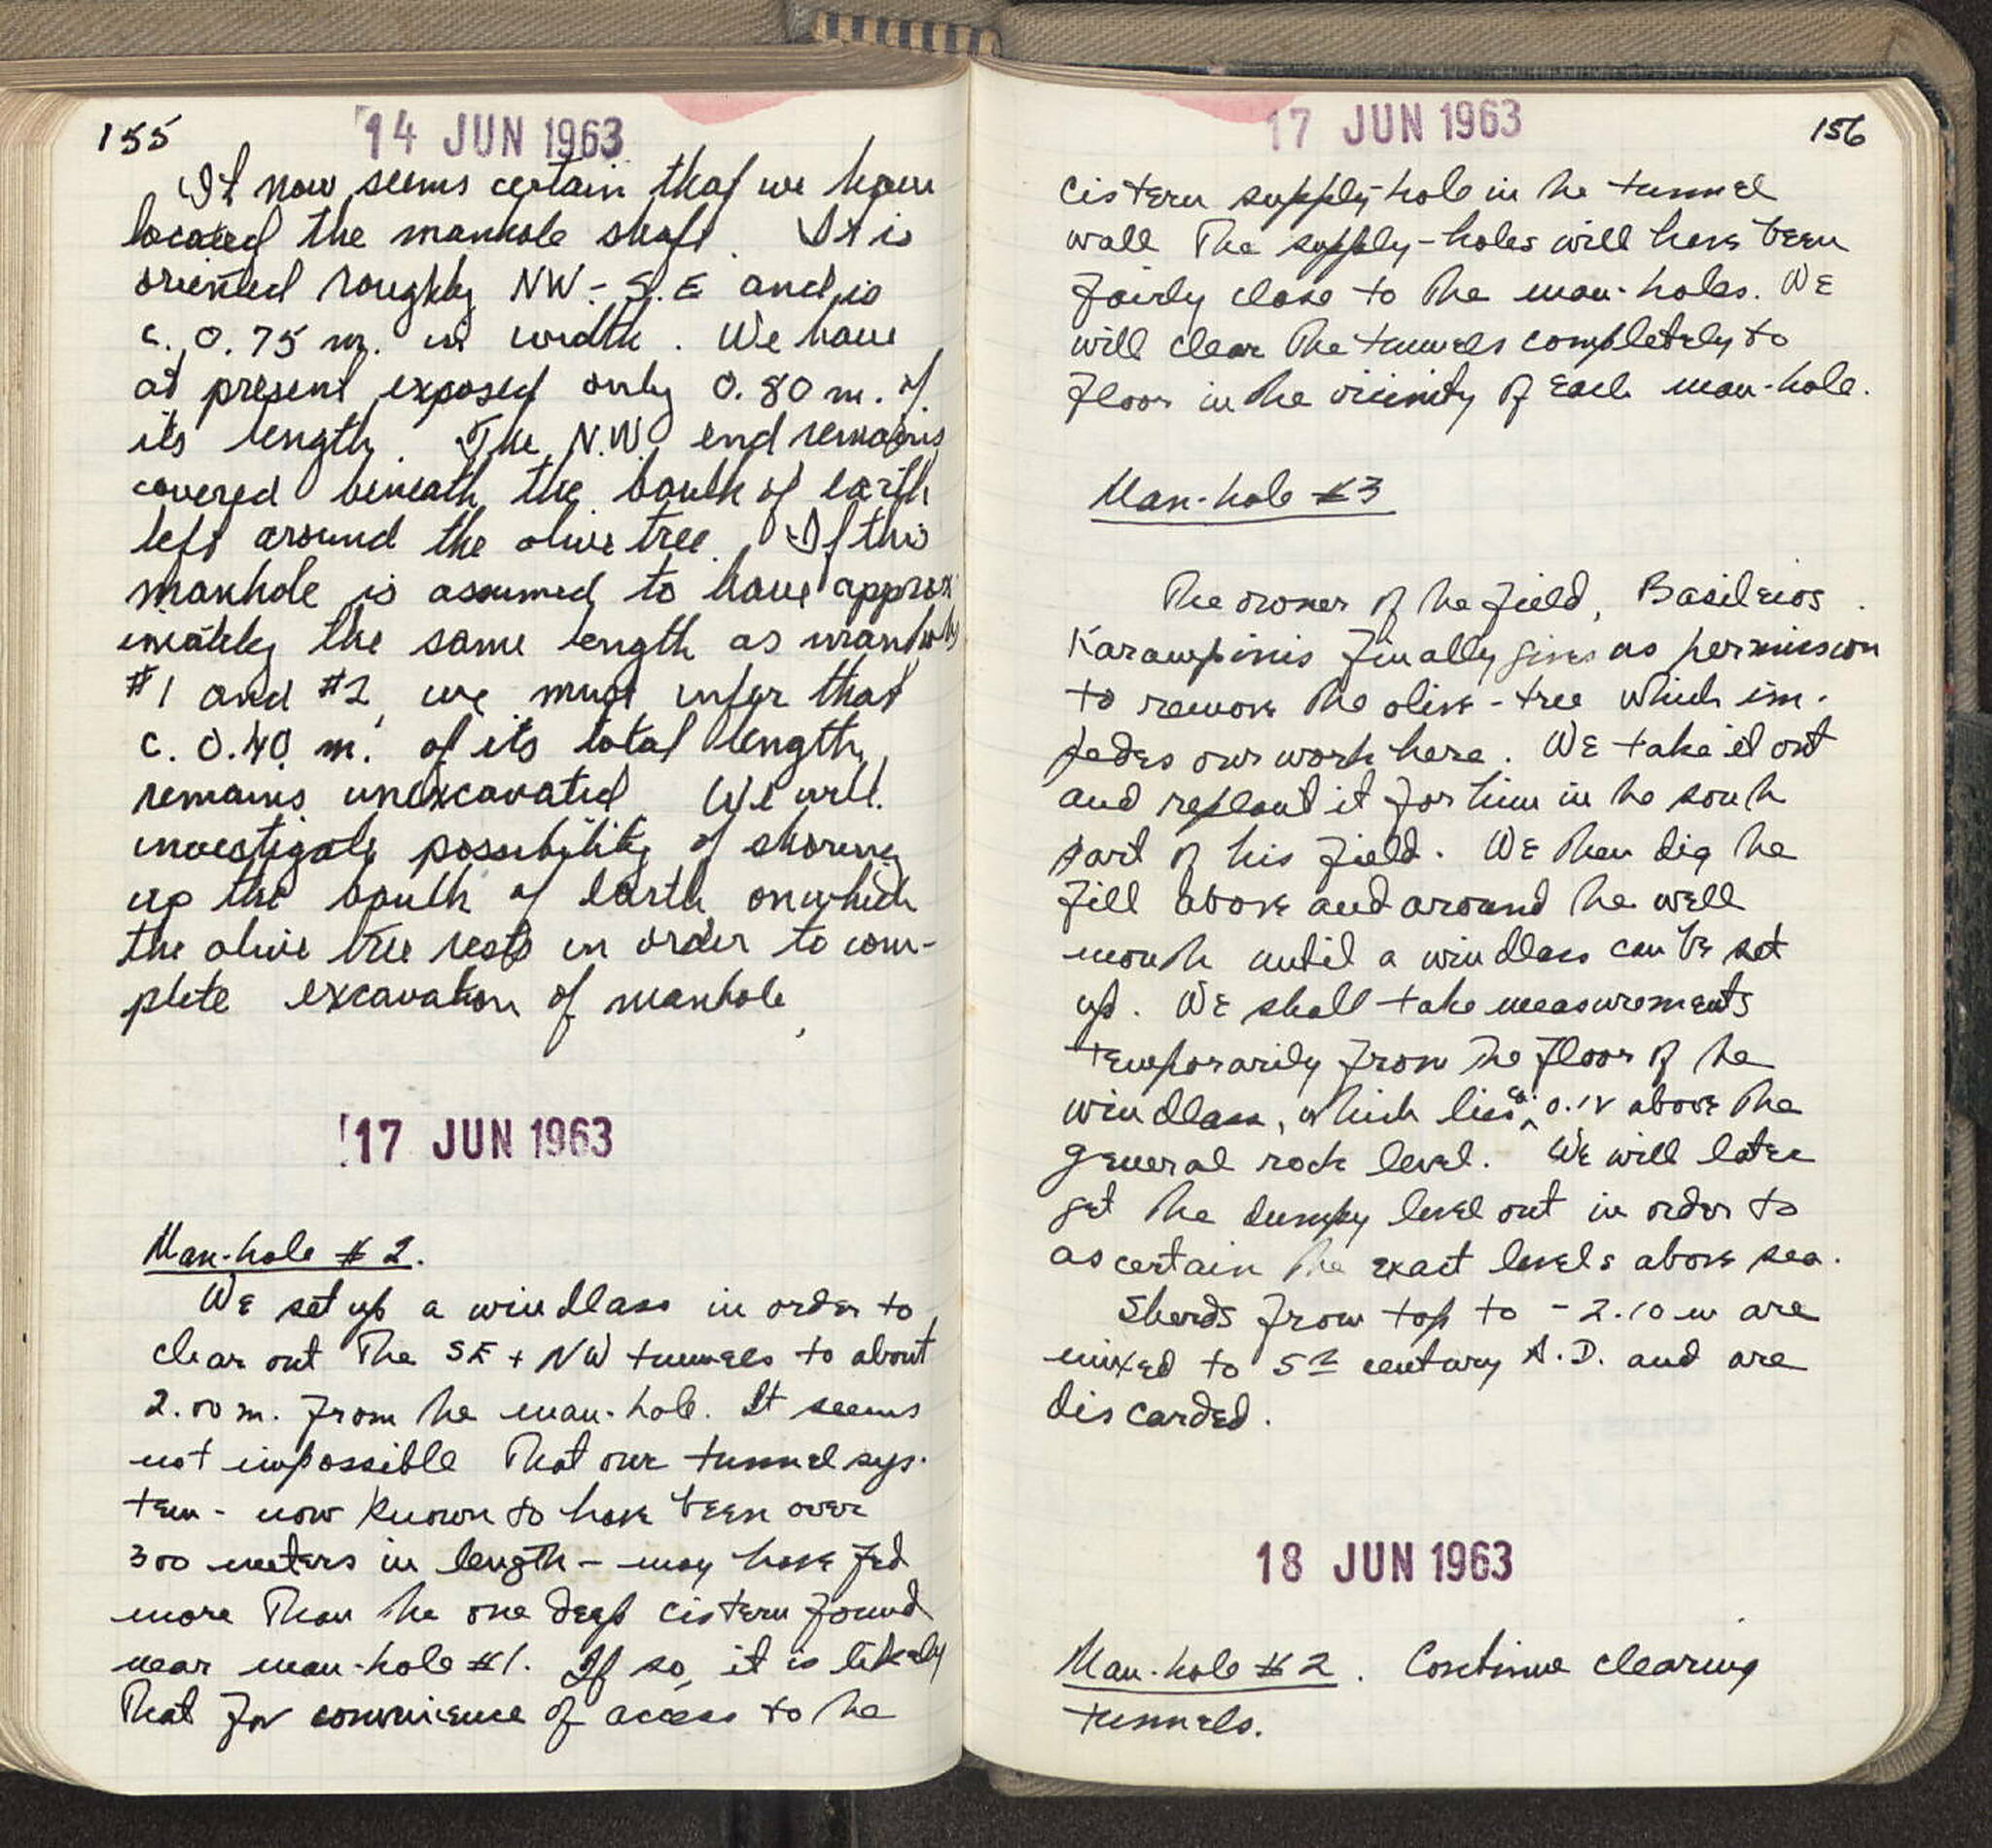 155
14 JUN 1963
It now seems certain that we have
located the manhole shaft. It is
oriented roughly NW-S.E and is
c. 0.75 m. in width. We have
at present exposed only 0.80 m. of
its length. The N.W. end remains
covered beneath the baulk of earth
left around the olive tree. If this
manhole is assumed to have approx
imately the same length as manhole
#1 and #2, we must infer that
c. 0.40 m. of its total length
remains unexcavated We will
investigate possibility of shoring
up the baulk of earth on which
the olive tree rests in order to com-
plete excavation of manhole
17 JUN 1963
Man-hole #2.
We set up a windlass in order to
clear out the SE + NW tunnels to about
2.00 m. from the man-hole. It seems
not impossible that our tunnel sys-
tem - now known to have been over
300 meters in length - may have fed
more than the one deep cistern found
near man-hole #1. If so, it is likely
that for convenience of access to the
17 JUN 1963
156
cistern supply-hole in the tunnel
wall The supply-holes will have been
fairly close to the man-holes. We
will clear the tunnels completely to
floor in the vicinity of each man-hole.
Man-hole #3
The owner of the field, Basileios
Karampinis finally gives us permission
to remove the olive-tree which im-
pedes our work here. We take it out
and replant it for him in the south
part of his field. We then dig the
fill above and around the well
mouth until a windlass can be set
up. We shall take measurements
temporarily from the floor of the
windlass, which lies ca. above the
general rock level. We will later
get the dumpy level out in order to
ascertain the exact levels above sea.
Sherds from top to -2.10 m are
mixed to 5th century A.D. and are
discarded.
18 JUN 1963
Man-hole #2. Continue clearing
tunnels.